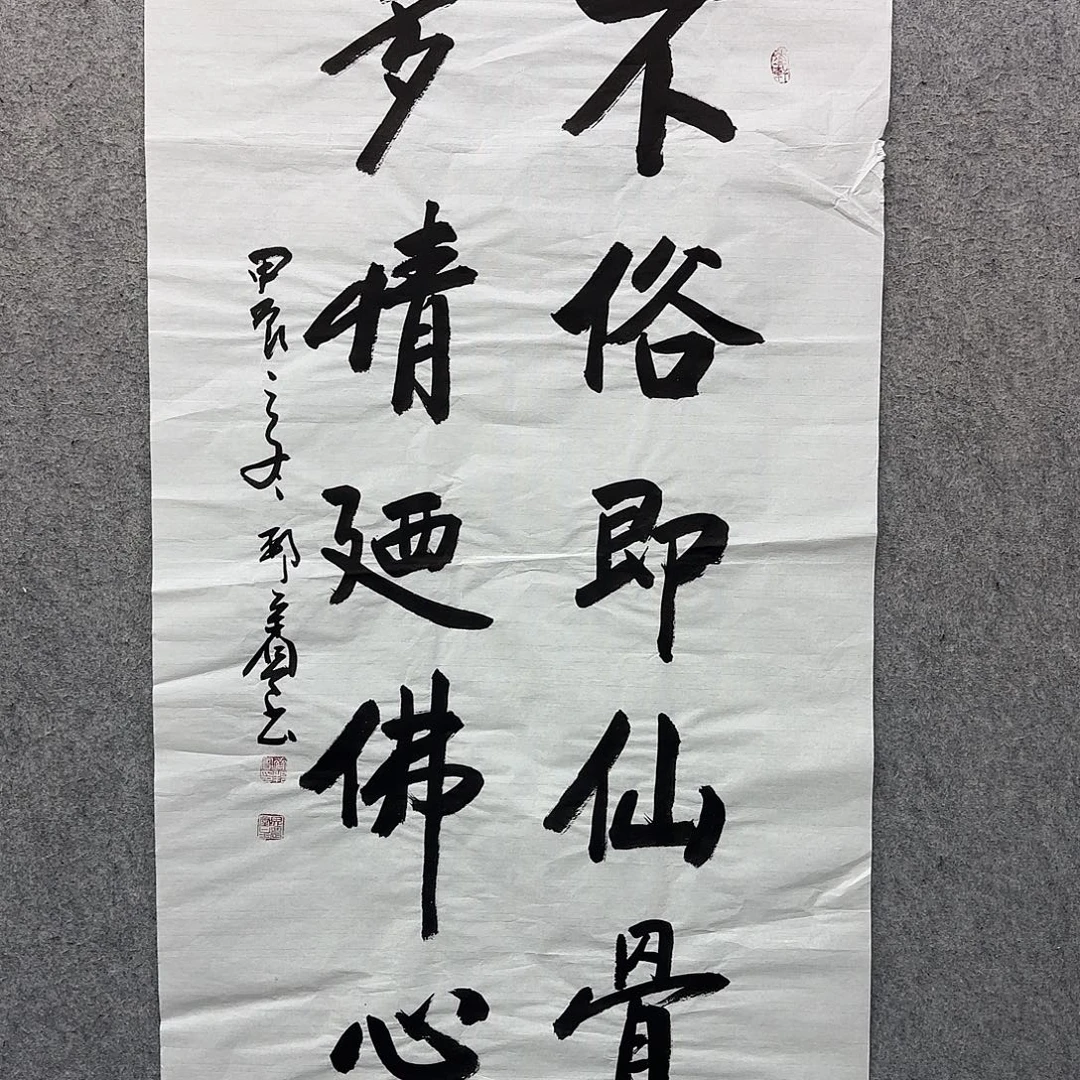 不俗即仙骨
多情廼佛心
甲辰之冬